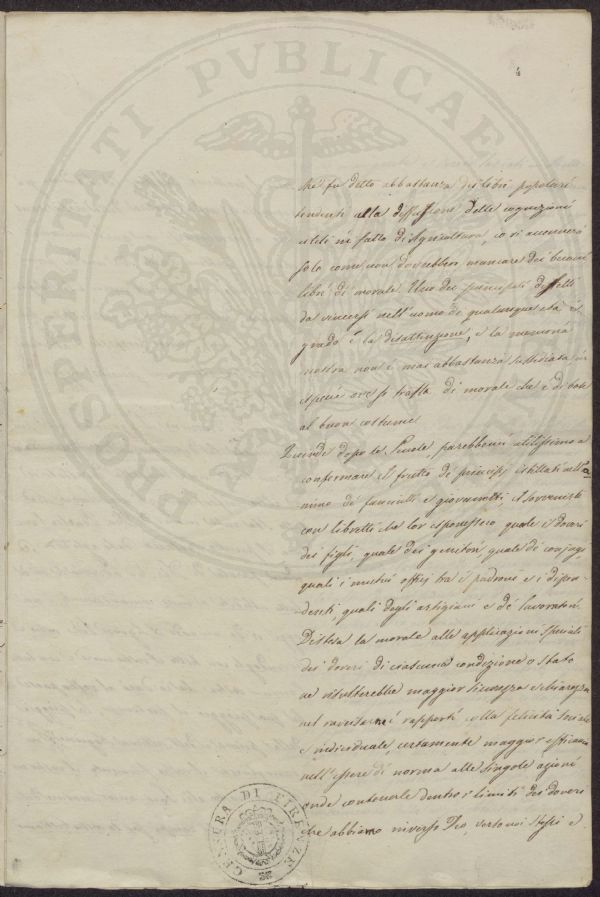 PROSPERITATI PVBLICAE
Me fu detto abbastanza dei libri popolari
tendenti alla diffusione delle cognizioni
utili in fatto di Agricoltura, io vi accennerò
solo come non dovrebbero mancare dei buoni
libri di morale. Uno dei principali difetti
da vincersi nell'uomo di qualunque età e
grado è la disattenzione, e la memoria
nostra non è mai abbastanza sussidiata in
specie ove si tratta di morale che è di base
al buon costume
Quindi dopo le Scuole, parebbemi utilissimo a
confermare il frutto de' principj istillati nell'a
nimo de' fanciulli e giovanotti, il sovvenirli
con libretti che lor esponessero quale i doveri
dei figli, quale dei genitori, quale di conjugi,
quali i mutui offizj tra i padroni e i dipen-
denti, quali degli artigiani e de' lavoratori.
Distesa la morale alle applicazioni speciali
dei doveri di ciascuna condizione o stato
ne risulterebbe maggior sicurezza e chiarezza
nel ravvisarne i rapporti colla felicità sociale
e individuale, certamente maggior efficacia
nell'essere di norma alle singole azioni
onde contenerle dentro i limiti dei doveri
che abbiamo inverso Dio, verso noi stessi e
CENSURA DI FIRENZE